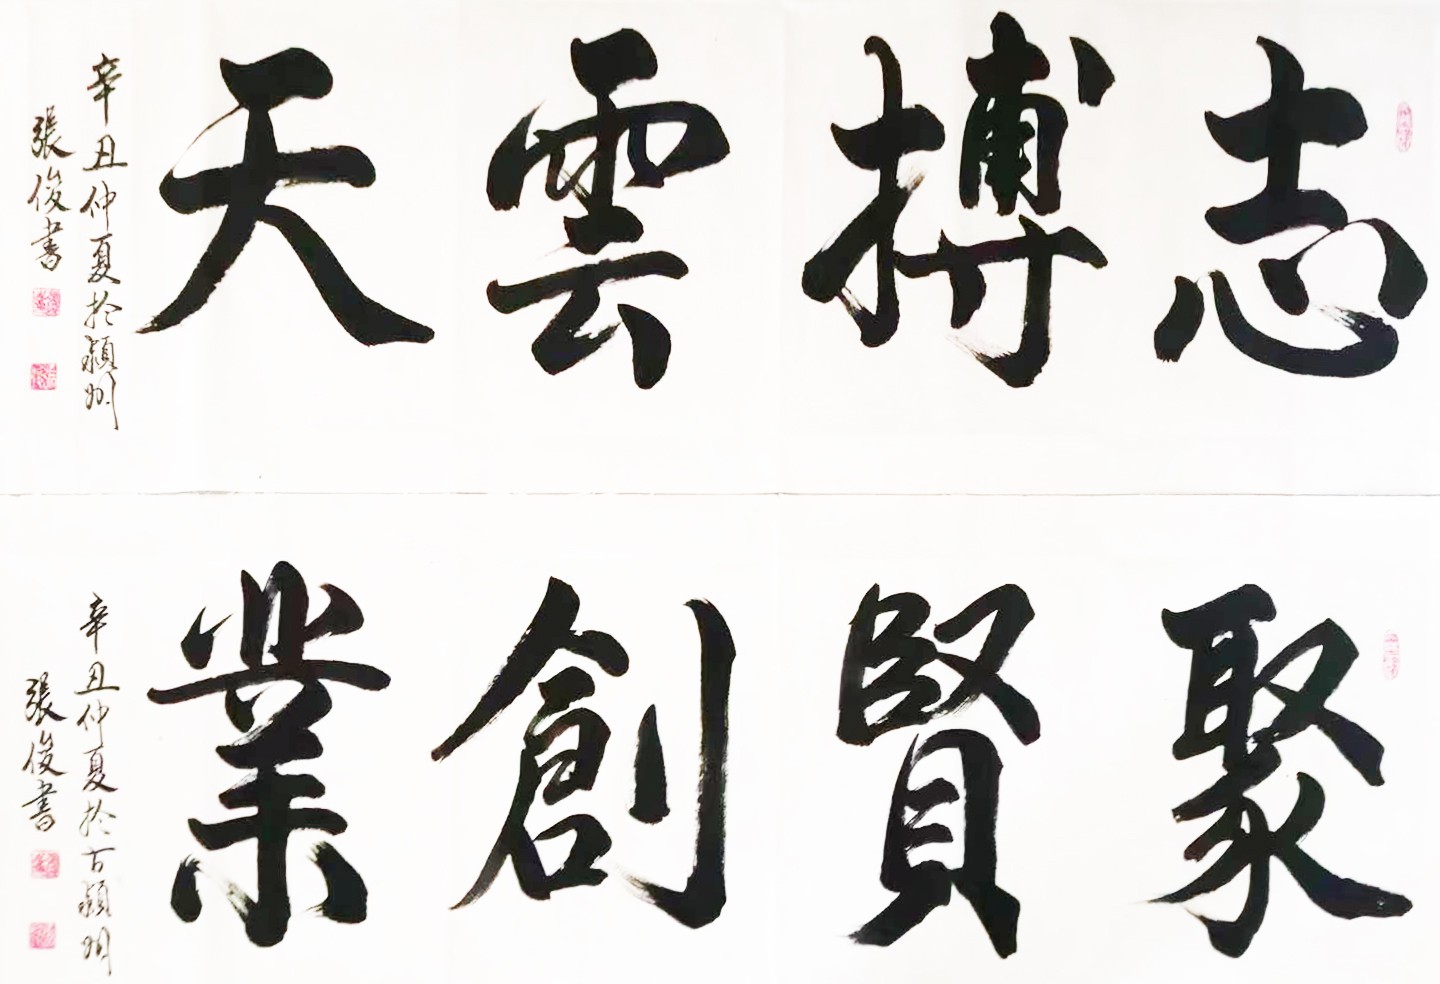 志搏雲天
辛丑仲夏於潁州
張俊書
聚賢創業
辛丑仲夏於古潁州
張俊書